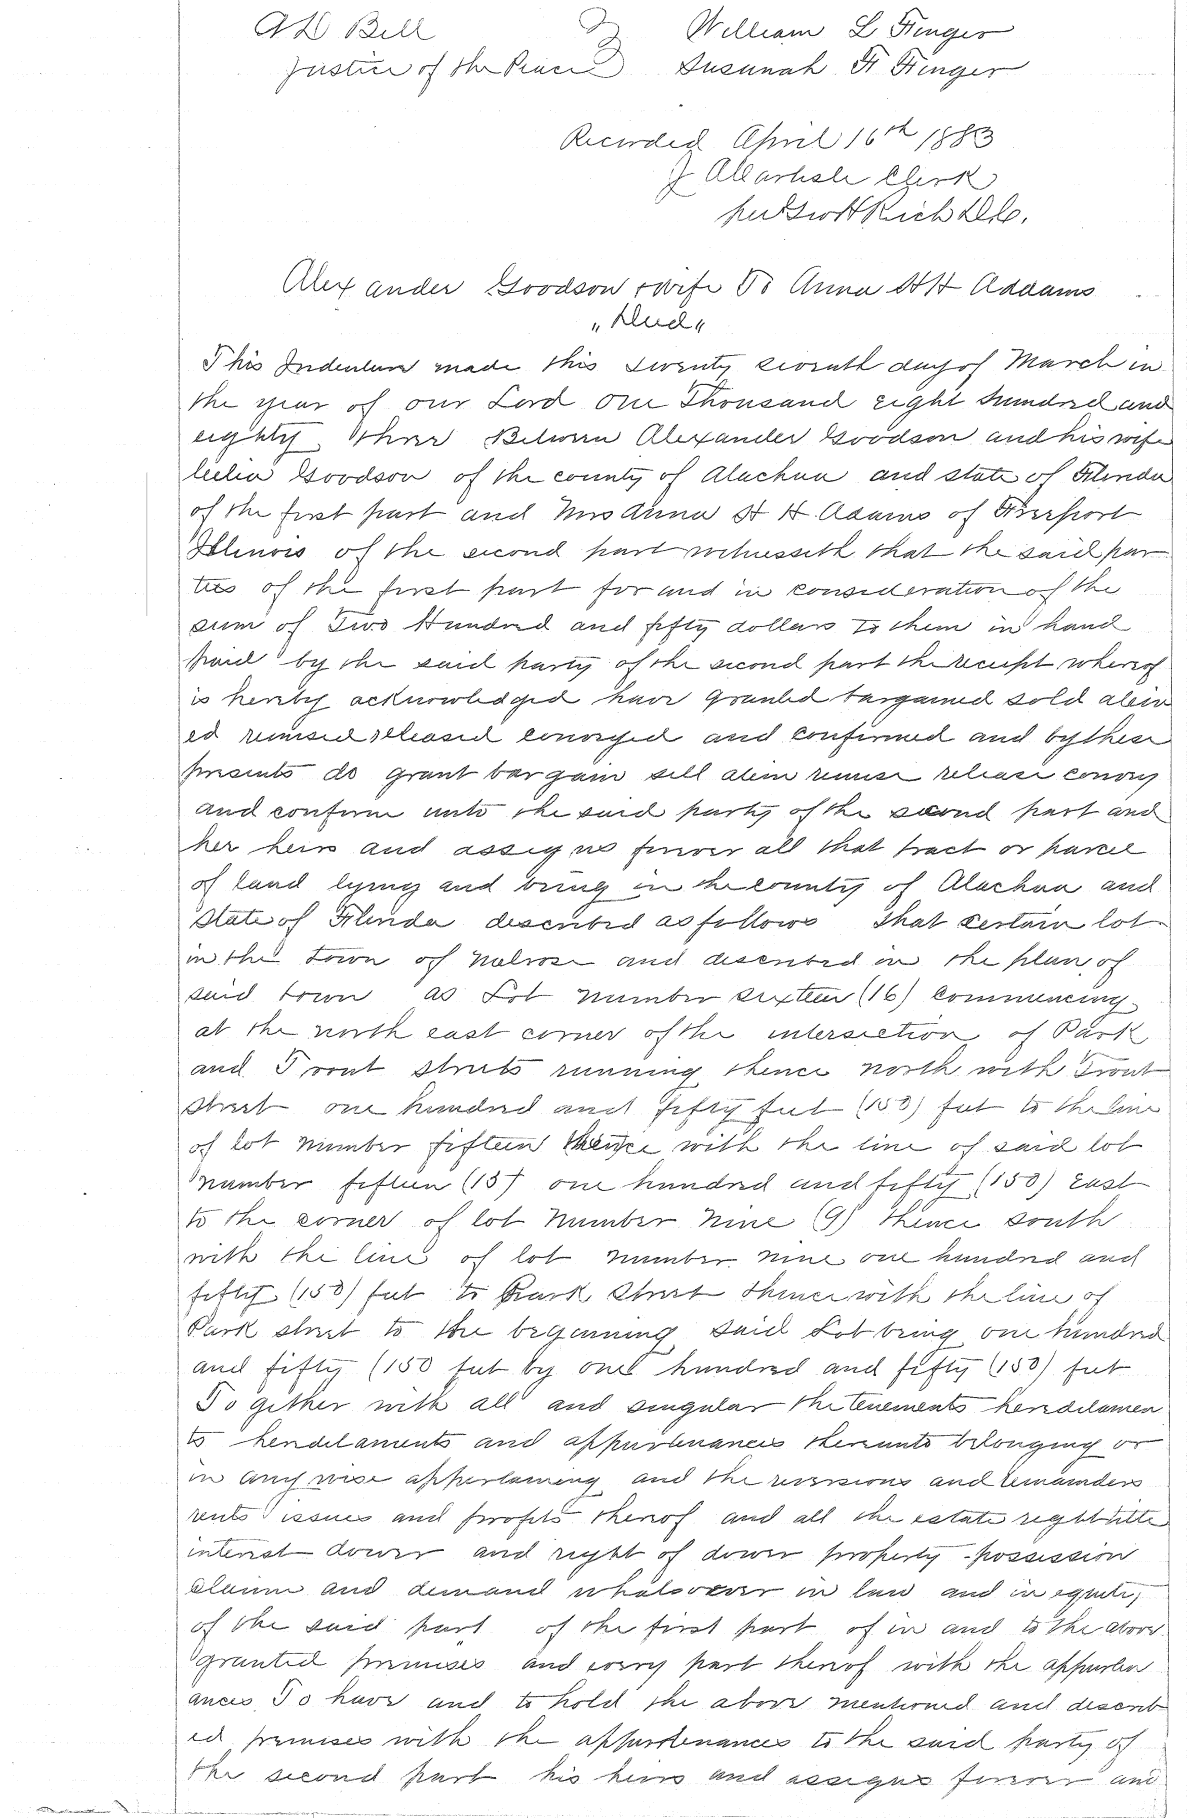 A D Bell William L Finger
Justice of the Peace Susanah F Finger
Recorded April 16th 1883
J A Carlisle Clerk
per Rich D.C.
Alexander Goodson & wife To Anna H H Addams
"Deed"
This Indenture made this twenty seventh day of March in
the year of our Lord One Thousand eight hundred and
eighty three Between Alexander Goodson and his wife
Celia Goodson of the county of Alachua and state of Florida
of the first part and Mrs Anna H H Adams of Freeport
Illinois of the second part witnesseth that the said par
ties of the first part for and in consideration of the
sum of Two Hundred and fifty dollars to them in hand
paid by the said party of the second part the receipt whereof
is hereby acknowledged have granted bargained sold alien
ed remised released conveyed and confirmed and by these
presents do grant bargain sell alien remise release convey
and confirm unto the said party of the second part and
her heirs and assigns forever all that tract or parcel
of land lying and being in the county of Alachua and
State of Florida described as follows That certain lot
in the town of Melrose and described in the plan of
said town as Lot number sixteen (16) commencing
at the north east corner of the intersection of Park
and Front streets running thence north with Front
street one hundred and fifty feet (150) feet to the line
of lot number fifteen thence with the line of said lot
number fifteen (15) one hundred and fifty (150) East
to the corner of lot number nine (9) thence south
with the line of lot number nine one hundred and
fifty (150) feet to Park Street thence with the line of
Park street to the beginning said Lot being one hundred
and fifty (150 feet by one hundred and fifty (150) feet
Together with all and singular the tenements heredilamen
ts heredilaments and appurtenances thereunto belonging or
in any wise appertaining and the reversions and remainders
rents issues and profits thereof and all the estate right title
interest dower and right of dower property possession
claim and demand whatsoever in law and in equity,
of the said part of the first part of in and to the above
granted premises and every part thereof with the appurten
ances To have and to hold the above mentioned and describ
ed premises with the appurtenances to the said party of
the second part his heirs and assigns forever and